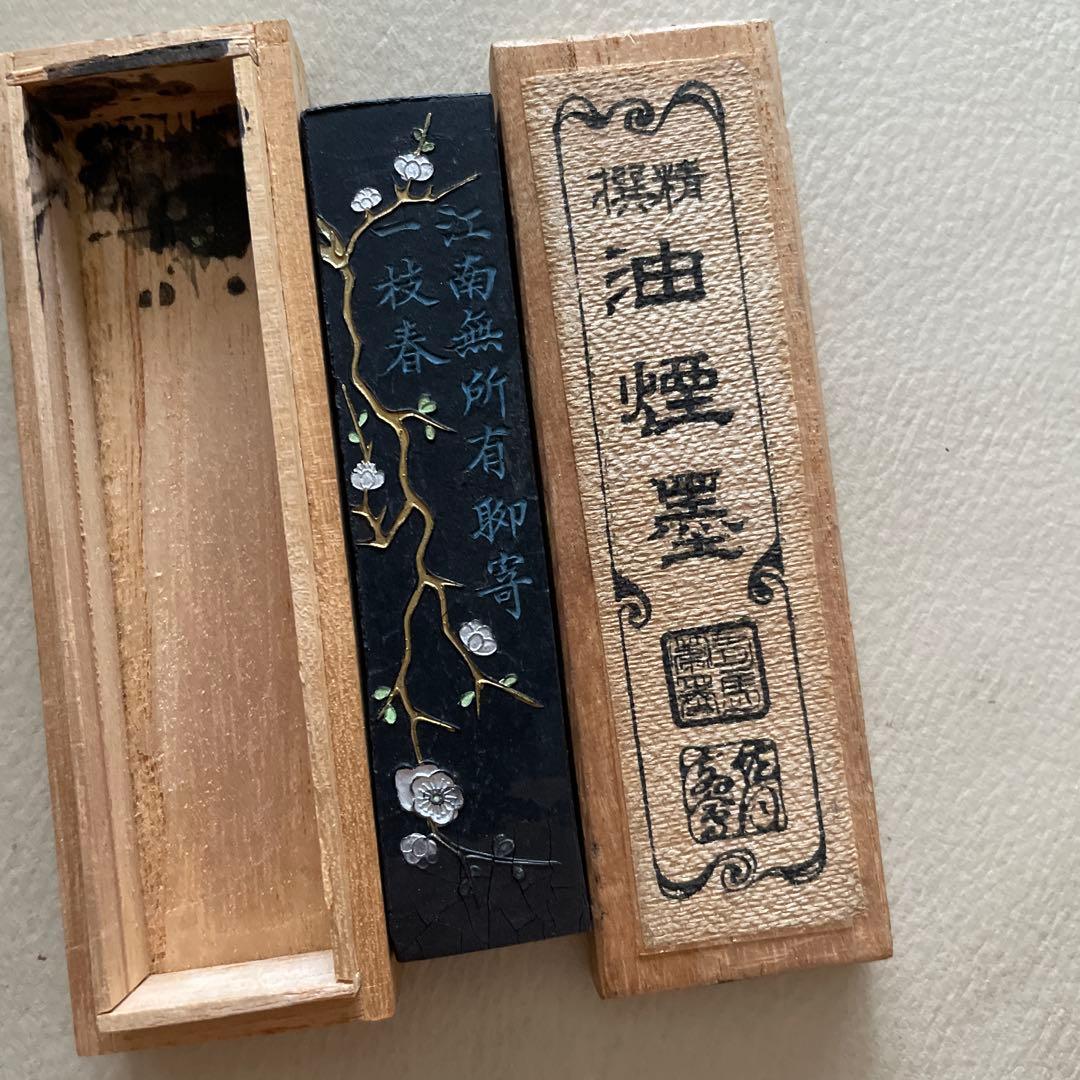 江南無所有聊寄
一枝春
精撰
油煙墨